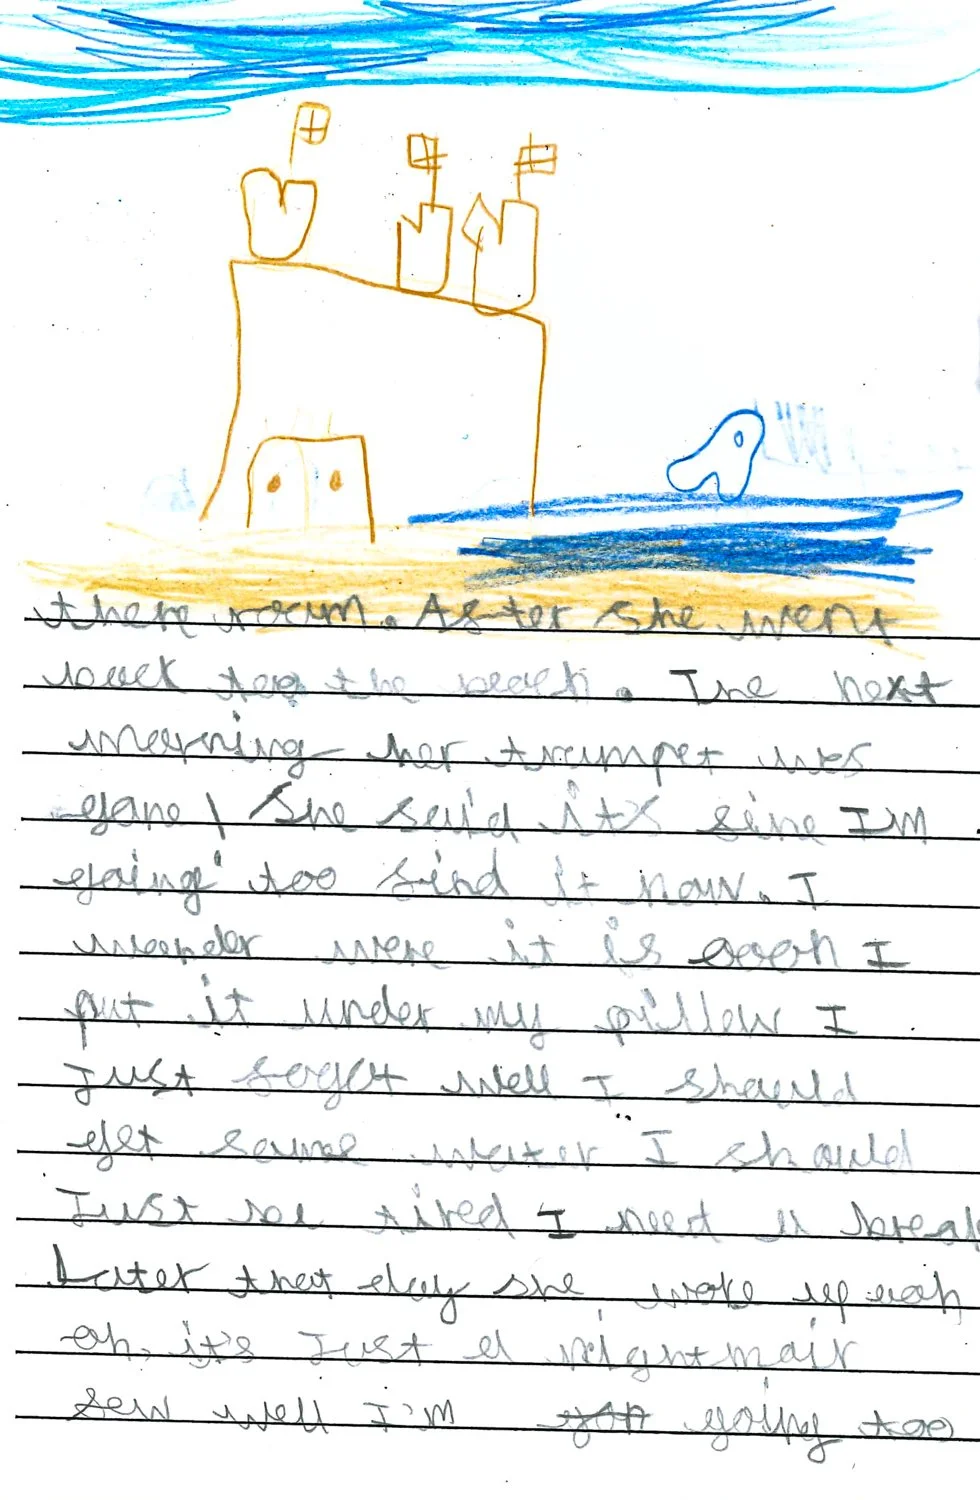 there room. After she went
back too the beach. The next
morning her trumpet was
gone! She said it's fine I'M
going too find it now. I
wonder were it is oooh I
put it under my pillow I
Just foget well I should
get some water I should
Just be tired I need a break
Later that day she woke up ooh
oh, it's Just a nightmair
few well I'M going too